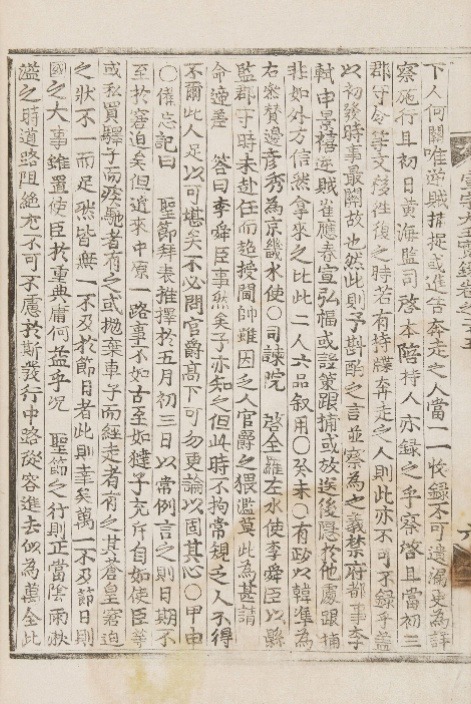 下人何關唯逆賊捕捉或進告奔走之人當一一收錄不可遺漏更爲詳
察施行且初日黃海監司 啓本陪持人亦錄之乎察啓且當初三
郡守令等文移往復之時若有持牒奔走之人則此亦不可不錄乎蓋
以初發時事最關故也然此則予斟酌之言並察爲之義禁府都事李
軾申景禧逆賊崔應春宣弘福或設策跟捕或放送後隱於他處跟捕
非如外方信然拿來之比此二人六品叙用○癸未○有政以韓準爲
右參贊邊彥秀爲京畿水使○司諫院 啓全羅左水使李舜臣以縣
監郡守時未赴任而超授閫帥雖因乏人官爵之猥濫莫此爲甚請
命遞差 答曰李舜臣事然矣予亦知之但此時不拘常規乏人不得
不爾此人足以可堪矣不必問官爵高下可勿更論以固其心○甲申
○備忘記曰 聖節拜表推擇於五月初三日以常例言之則日期不
至於窘迫矣但邇來中原一路事不如古至如㺚子充斥自如使臣等
或私買驛子而疾馳者有之或抛棄車子而經走者有之其蒼皇窘迫
之狀不一而足然皆無一不及於節目者此則幸矣萬一不及節日則
國之大事雖置使臣於重典庸何益乎況 聖節之行則正當陰雨漲
溢之時道路阻絶尤不可不慮於斯發行中路從容進去似爲萬全此